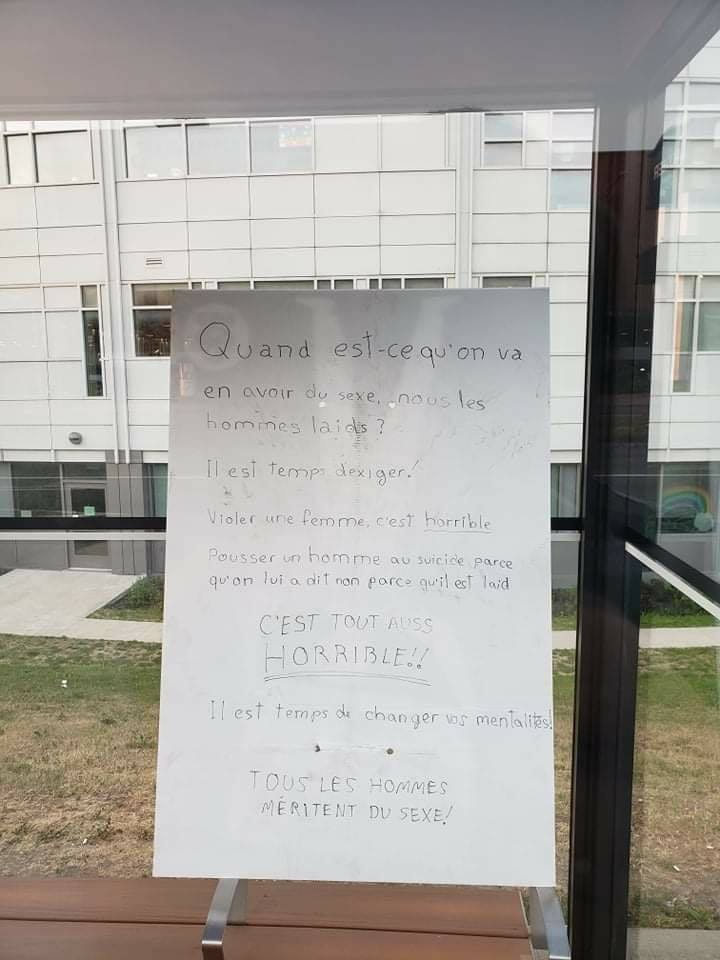 Quand est-ce qu'on va
en avoir du sexe, nous les
hommes laids ?
Il est temps d'exiger!
Violer une femme, c'est horrible
Pousser un homme au suicide parce
qu'on lui a dit non parce qu'il est laid
C'EST TOUT AUSS
HORRIBLE!!
Il est temps de changer vos mentalités!
TOUS LES HOMMES
MÉRITENT DU SEXE!